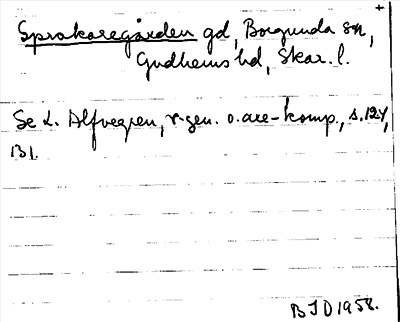 Sprakaregården gd, Borgunda sn,
Gudhems hd, Skar. l.
Se L. Alfvegren, r-gen. o. are-komp., s. 124,
B I D 1958.